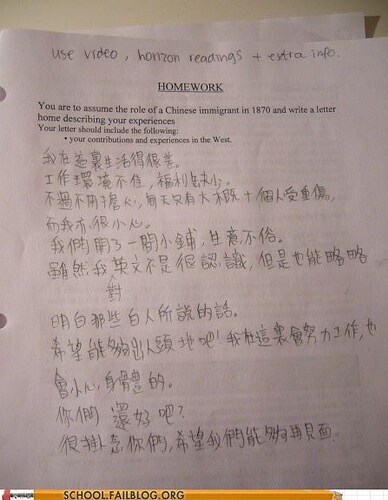 use video, horizon readings + extra info.
HOMEWORK
You are to assume the role of a Chinese immigrant in 1870 and write a letter
home describing your experiences
Your letter should include the following:
• your contributions and experiences in the West.
我在這裏生活得很差。
工作環境不佳，福利缺少。
不過不用擔心，每天只有大概十個人受重傷，
而我亦很小心。
我們開了一間小鋪，生意不俗。
雖然我對英文不是很認識，但是也能略略
明白那些白人所說的話。
希望能夠出人頭地吧！我在這裏會努力工作，也
會小心身體的。
你們還好吧？
很掛念你們，希望我們能夠再見面。
SCHOOL.FAILBLOG.ORG